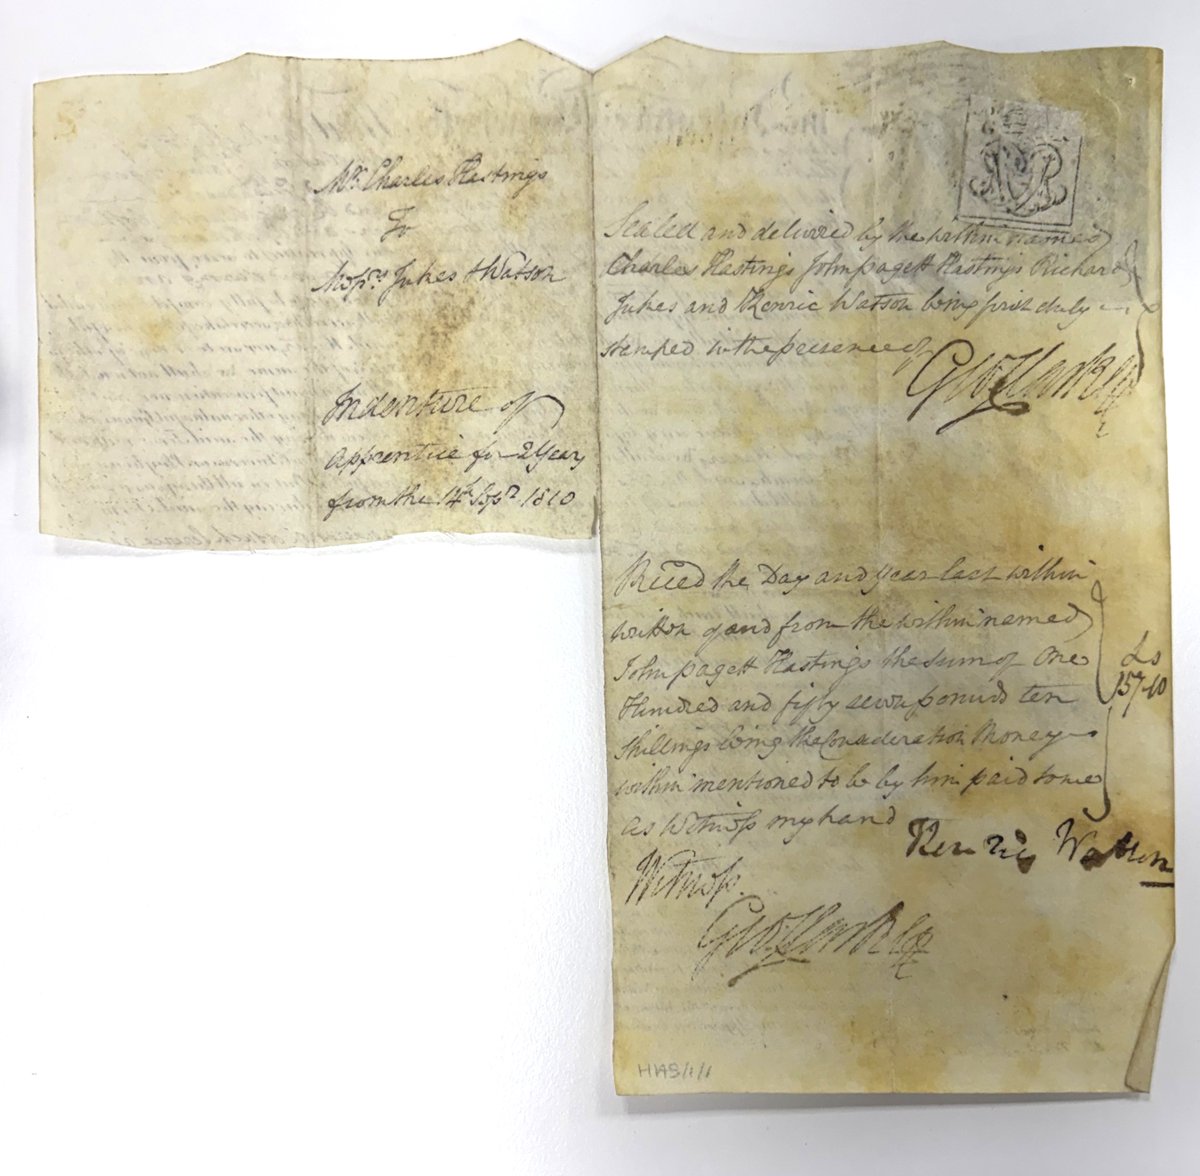 Mr. Charles Hastings
To
Messrs Jukes & Watson
Indenture of
apprentice for 2 Years
from the 14th Sepr 1810
Sealed and delivered by the within named
Charles Hastings John pagett Hastings Richard
Jukes and Kenric Watson being first duly
stamped in the presence of
Rec'ed the Day and Year last within
written of and from the within named
John pagett Hastings the sum of One
Hundred and fifty seven pounds ten
Shillings being the Consideration Money
within mentioned to be by him paid to me
As Witness my hand
£ s
157-10
Kenric Watson
Witness
HWS/1/1